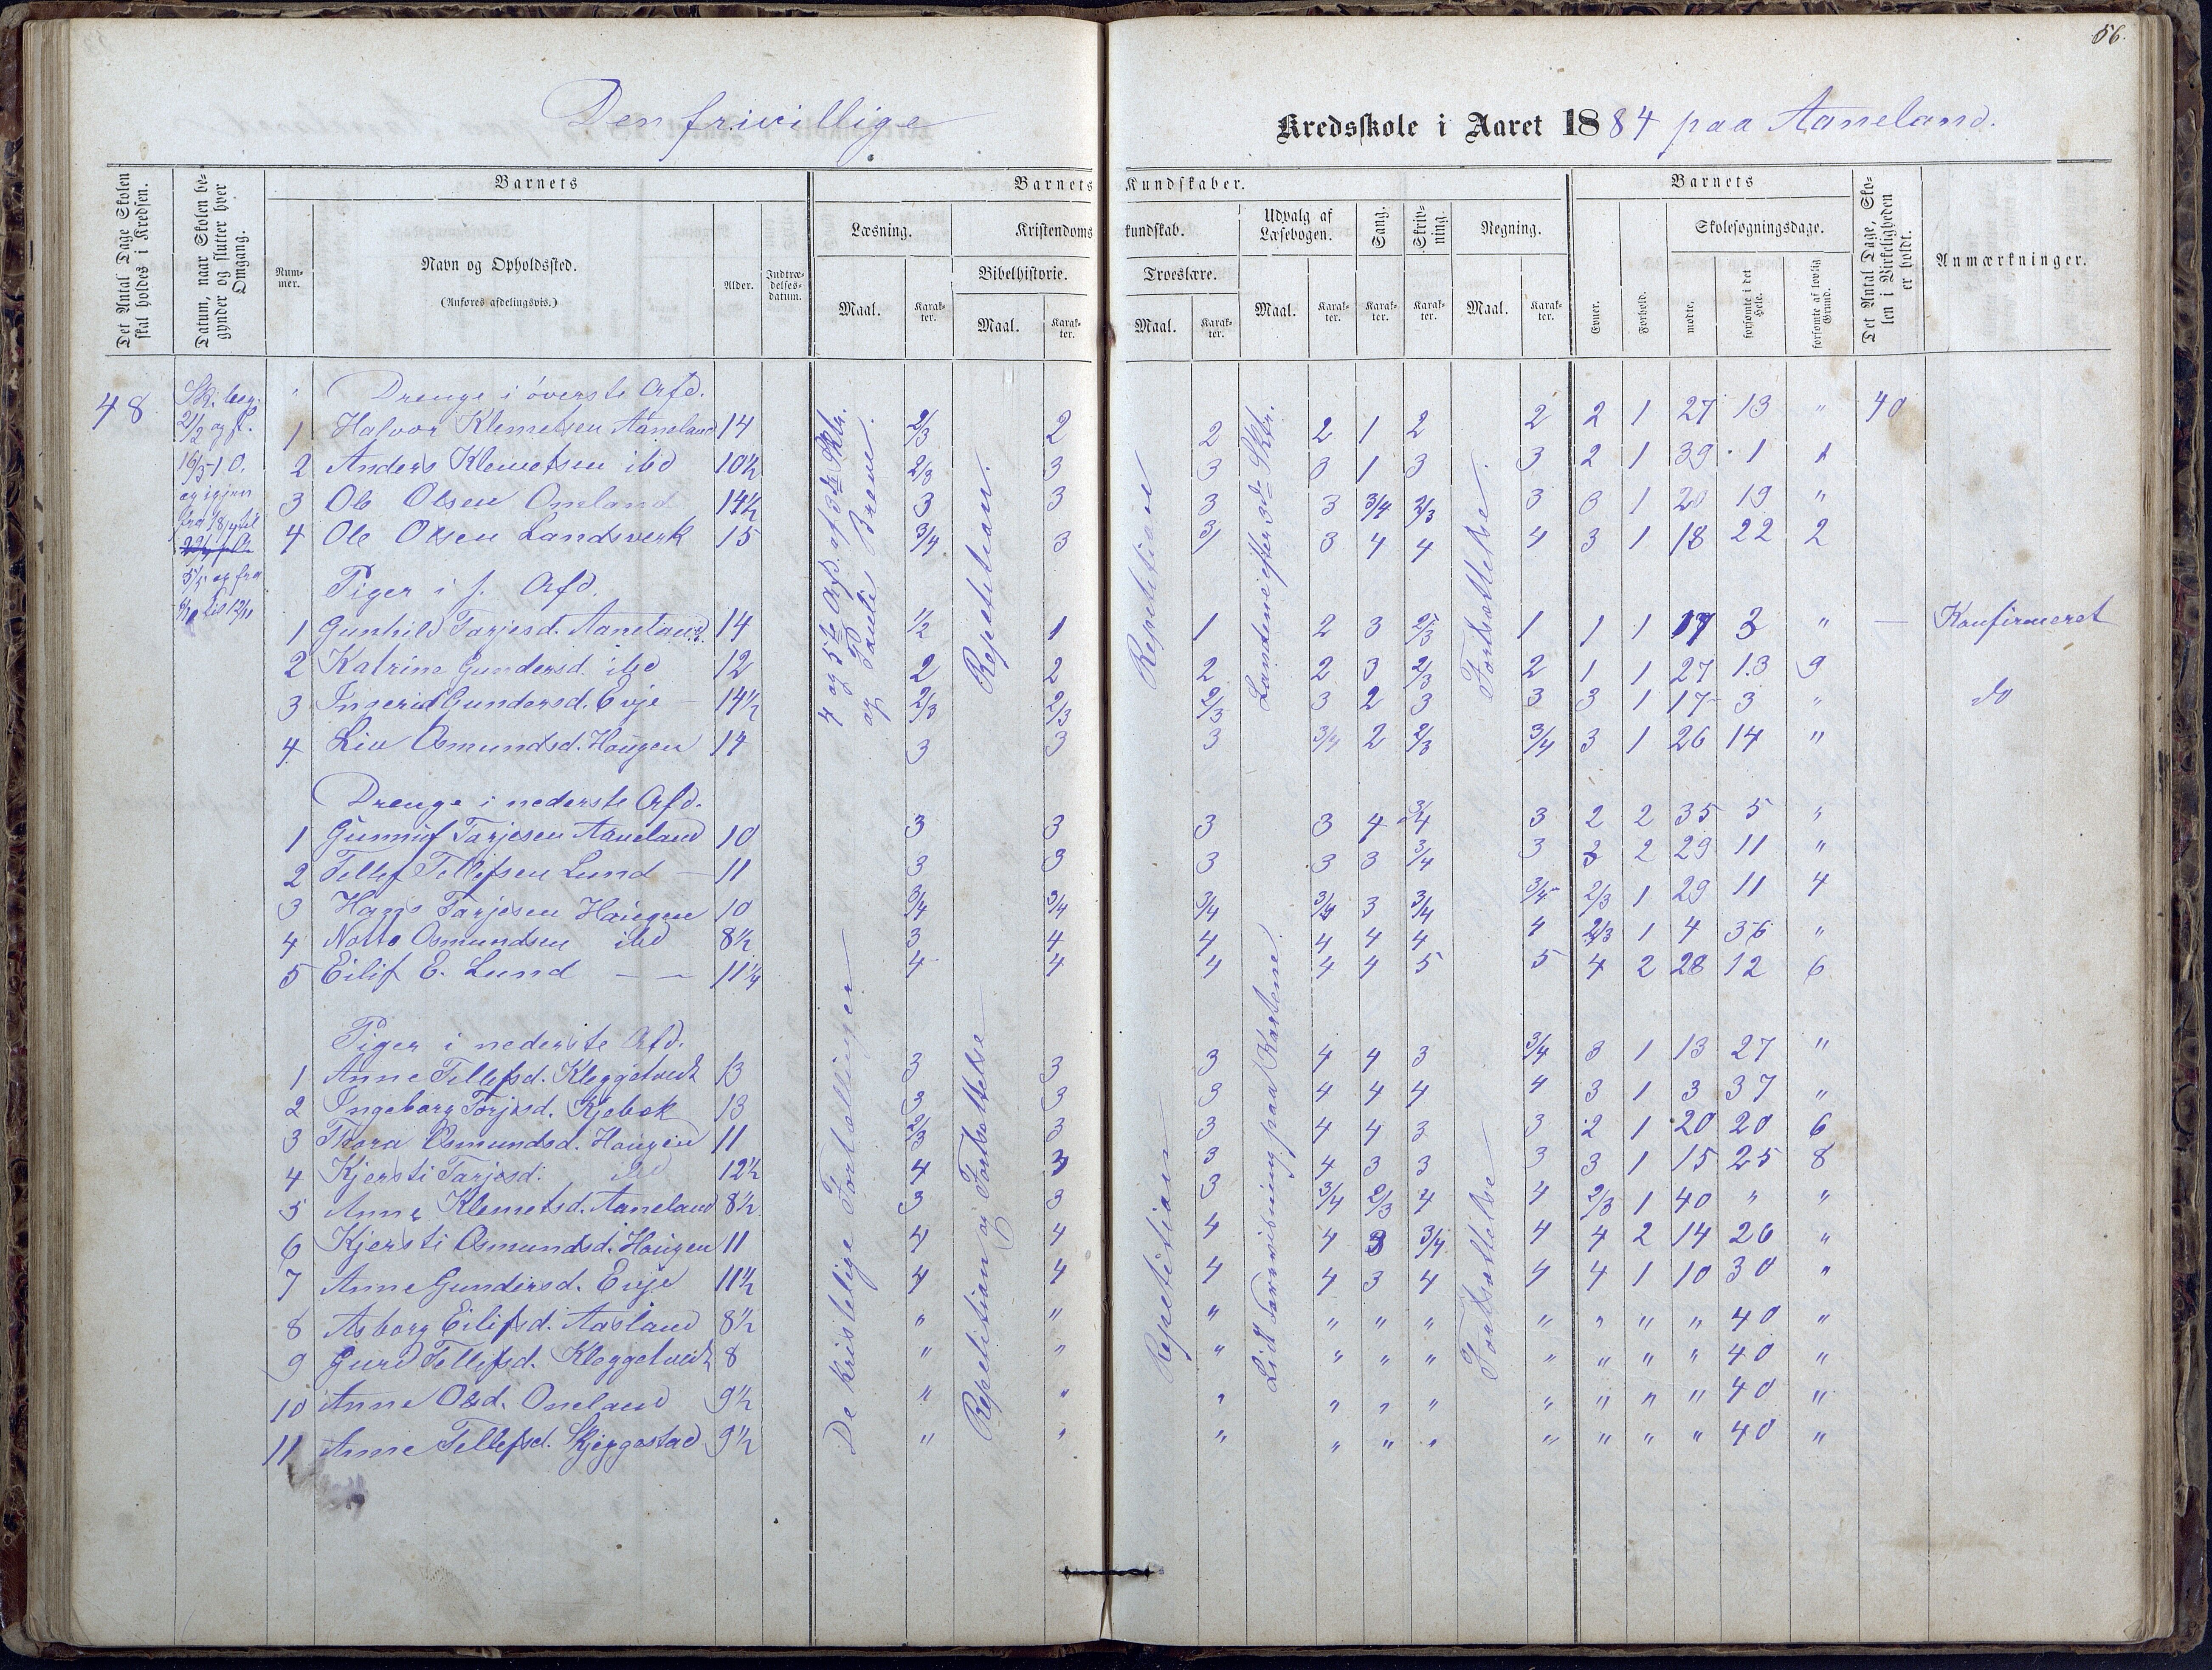 56.
Den frivillige Kredsskole i Aaret 1884 paa Aaneland.
Det Antal Dage Skolen skal holdes i Kredsen.
Datum, naar Skolen begynder og slutter hver Omgang.
Barnets
Num-mer.
Navn og Opholdssted.
(Anføres afdelingsvis.)
Alder.
Indtræ-delses-datum.
Barnets Kundskaber.
Læsning.
Kristendomskundskab.
Udvalg af Læsebogen.
Sang.
Skriv-ning.
Regning.
Bibelhistorie.
Troeslære.
Maal.
Karak-ter.
Maal.
Karak-ter.
Maal.
Karak-ter.
Maal.
Karak-ter.
Karak-ter.
Karak-ter.
Maal.
Karak-ter.
Barnets
Evner.
Forhold.
Skolesøgningsdage.
mødte.
forsømte i det Hele.
forsømte af lovlig Grund.
Det Antal Dage, Skolen i Virkeligheden er holdt.
Anmærkninger.
48
Sk. beg.
21/2 og fl.
16/3 - I O.
og igjen
fra 18/4 til
5/5 og fra
til 12/11
4 og 5te Afd. af 3die Sktr.
og Pauli Breve.
Repetition.
Repetition
Landene efter 3die Sktr.
Fortsættelse.
Drenge i øverste Afd.
1 Halvor Klemetsen Aaneland 14 2/3 2 2 2 1 2 2 2 1 27 13 " 40
2 Anders Klemetsen ibd 10½ 2/3 3 3 3 1 3 3 2 1 39 1 1
3 Ole Olsen Oneland 14½ 3 3 3 3 3/4 2/3 3 3 1 20 19 "
4 Ole Olsen Landsverk 15 3/4 3 3/ 3 4 4 4 3 1 18 22 2
Piger i f. Afd.
1 Gunhild Tarjesd. Aaneland. 14 1/2 1 1 2 3 2/3 1 1 1 17 3 " — Konfirmeret
2 Katrine Gundersd. ibd 12 2 2 2 2 3 2/3 2 1 1 27 13 9
3 Ingerid Gundersd. Evje 14½ 2/3 2/3 2/3 3 2 3 3 3 1 17 3 " do
4 Liv Osmundsd. Haugen 14 3 3 3 3/4 2 2/3 3/4 3 1 26 14 "
De kristelige Fortællinger
Repetition og Fortsættelse
Repetition
Lidt Forevisning paa Kartene.
Fortsættelse
Drenge i nederste Afd.
1 Gunnuf Tarjesen Aaneland 10 3 3 3 3 4 3/4 3 2 2 35 5 "
2 Tellef Tellefsen Lund — 11 3 3 3 3 3 3/4 3 3 2 29 11 "
3 Hans Tarjesen Haugen 10 3/4 3/4 3/4 3/4 3 3/4 3/4 2/3 1 29 11 4
4 Notto Osmundsen ibd 8½ 3 4 4 4 4 4 4 2/3 1 4 36 "
5 Eilif E. Lund — — 11¼ 4 4 4 4 4 5 5 4 2 28 12 6
Piger i nederste Afd.
1 Anne Tellefsd. Kleggetvedt 13 3 3 3 4 4 3 3/4 3 1 13 27 "
2 Ingeborg Torjusd. Kjebek 13 3 3 3 4 4 4 4 3 1 3 37 "
3 Thora Osmundsd. Haugen 11 2/3 3 3 4 4 3 3 2 1 20 20 6
4 Kjersti Tarjesd. ibd 12½ 4 3 3 4 3 3 3 3 1 15 25 8
5 Anne Klemetsd. Aaneland 8½ 3 3 3 3/4 2/3 4 4 2/3 1 40 " "
6 Kjersti Osmundsd. Haugen 11 4 4 4 4 3 3/4 4 4 2 14 26 "
7 Anne Gundersd. Evje 11½ 4 4 4 4 3 4 4 4 1 10 30 "
8 Asborg Eilifsd. Aasland 8½ " " " " " " " " " " 40 "
9 Gurd Tellefsd. Kleggetvedt 8 " " " " " " " " " " 40 "
10 Anne Olsd. Oneland 9½ " " " " " " " " " " 40 "
11 Anne Tellefsd. Skjeggestad 9½ " " " " " " " " " " 40 "